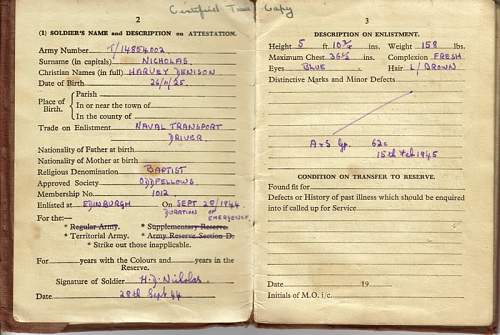 Certified True Copy
2
(1) SOLDIER'S NAME and DESCRIPTION on ATTESTATION.
Army Number T/14854002
Surname (in capitals) NICHOLAS
Christian Names (in full) HARVEY DENISON
Date of Birth 26/11/25.
Place of Birth
Parish
In or near the town of
In the county of
Trade on Enlistment NAVAL TRANSPORT
DRIVER.
Nationality of Father at birth
Nationality of Mother at birth
Religious Denomination BAPTIST
Approved Society ODDFELLOWS
Membership No. 1012
Enlisted at EDINBURGH On SEPT 28/1944
For the:— DURATION OF EMERGENCY
* Regular Army. * Supplementary Reserve.
* Territorial Army. * Army Reserve Section D.
* Strike out those inapplicable.
For years with the Colours and years in the
Reserve.
Signature of Soldier H. D. Nicholas.
Date 28th Sept 44
3
DESCRIPTION ON ENLISTMENT.
Height 5 ft. 10½ ins. Weight 158 lbs.
Maximum Chest 36½ ins. Complexion FRESH
Eyes BLUE Hair L/BROWN
Distinctive Marks and Minor Defects
A+S Gp. 62c
15th Feb 1945
CONDITION ON TRANSFER TO RESERVE.
Found fit for
Defects or History of past illness which should be enquired
into if called up for Service
Date 19
Initials of M.O. i/c.